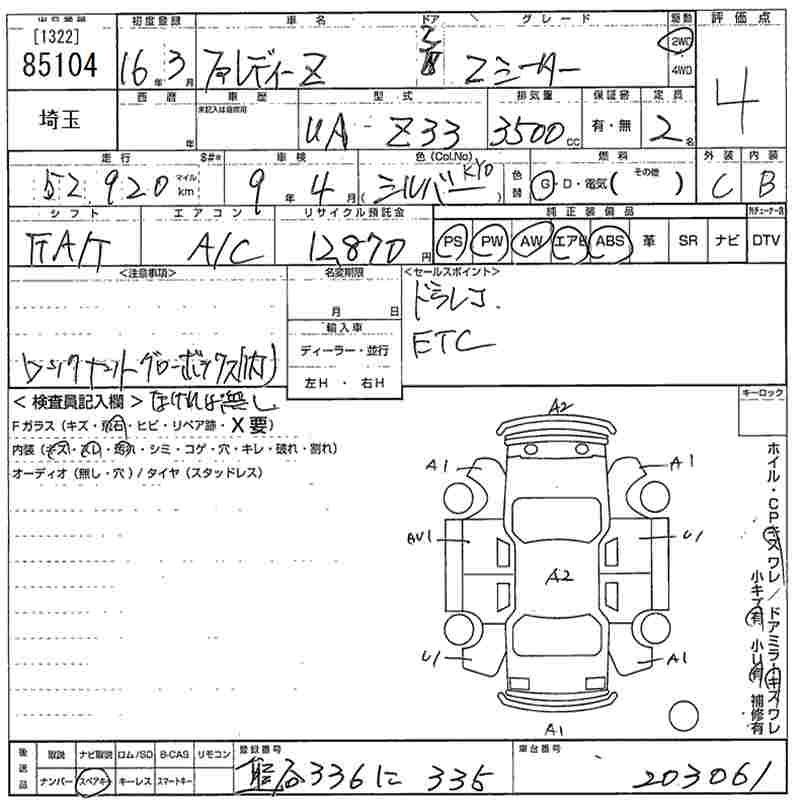 出品番号 初度登録 車名 ドア グレード 駆動 評価点
[1322]
85104 16年3月 フェアレディーZ Zシーター 2WD 4WD 4
埼玉 西暦 年 車歴 未記入は自家用 型式 UA-Z33 排気量 3500cc 保証書 有・無 定員 2名
走行 S#* 車検 色(Col.No) 燃料 外装 内装
52,920 マイル km 9年4月 (シルバー KY0) 色替 G・D・電気( その他 ) C B
シフト エアコン リサイクル預託金 純正装備品
FA/T A/C 12,870円 PS PW AW エアB ABS 革 SR ナビ DTV
<注意事項> 名変期限 <セールスポイント>
月 日 ドラレコ.
輸入車
ディーラー・並行 ETC
左H・右H
<検査員記入欄> なければ無し キーロック
Fガラス(キズ・飛石・ヒビ・リペア跡・X要)
内装(キズ・スレ・汚れ・シミ・コゲ・穴・キレ・破れ・割れ)
オーディオ(無し・穴)/タイヤ(スタッドレス)
A2
A1 A1
AU1 U1
A2
U1 A1
A1
ホイル・CPキズワレ/ドアミラーキズワレ
小キズ有 小U有 補修有
後送品 取説 ナビ取説 ロム/SD B-CAS リモコン 登録番号 車台番号
ナンバー スペアキー キーレス スマートキー 熊谷336に335 203061